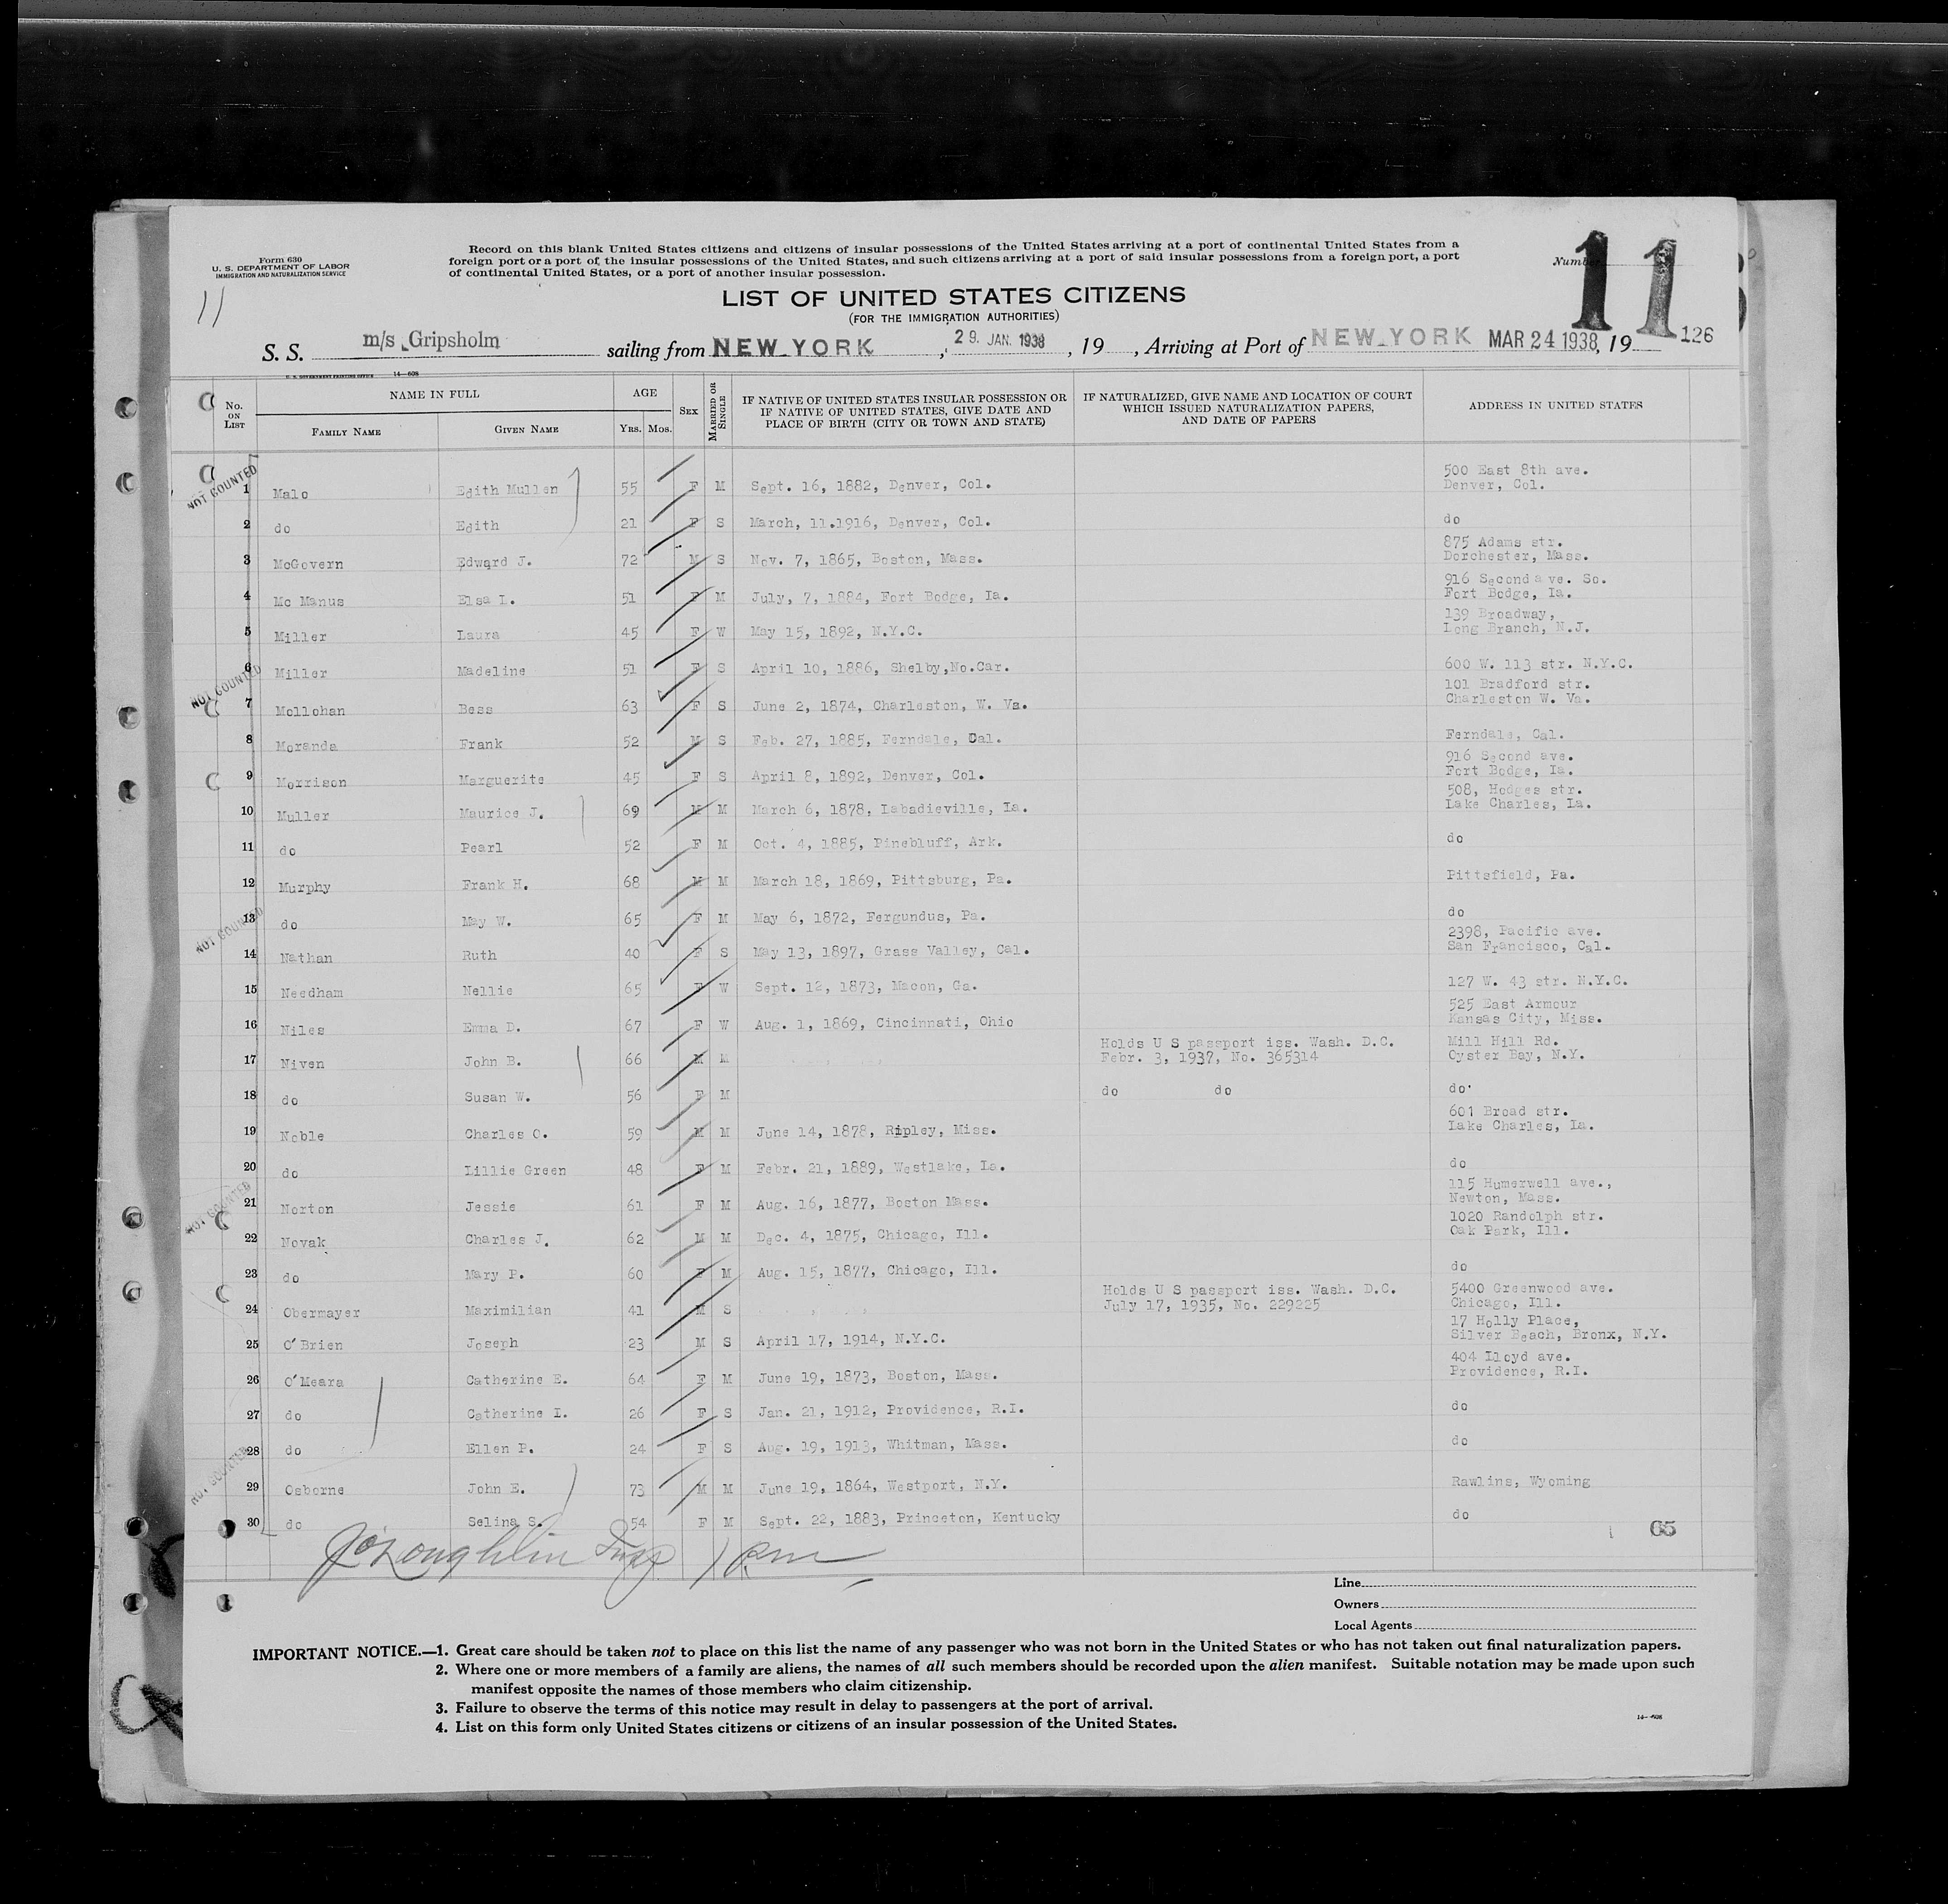 Form 630
U. S. DEPARTMENT OF LABOR
IMMIGRATION AND NATURALIZATION SERVICE
Record on this blank United States citizens and citizens of insular possessions of the United States arriving at a port of continental United States from a
foreign port or a port of the insular possessions of the United States, and such citizens arriving at a port of said insular possessions from a foreign port, a port
of continental United States, or a port of another insular possession.
Number 11
11
LIST OF UNITED STATES CITIZENS
(FOR THE IMMIGRATION AUTHORITIES)
S. S. m/s Gripsholm sailing from NEW YORK, 29. JAN. 1938, 19 , Arriving at Port of NEW YORK MAR 24 1938, 19 126
U. S. GOVERNMENT PRINTING OFFICE 14—608
No. ON LIST
NAME IN FULL
FAMILY NAME
GIVEN NAME
AGE
YRS. MOS.
SEX
MARRIED OR SINGLE
IF NATIVE OF UNITED STATES INSULAR POSSESSION OR
IF NATIVE OF UNITED STATES, GIVE DATE AND
PLACE OF BIRTH (CITY OR TOWN AND STATE)
IF NATURALIZED, GIVE NAME AND LOCATION OF COURT
WHICH ISSUED NATURALIZATION PAPERS,
AND DATE OF PAPERS
ADDRESS IN UNITED STATES
NOT COUNTED
500 East 8th ave.
1 Malo Edith Mullen 55 F M Sept. 16, 1882, Denver, Col. Denver, Col.
2 do Edith 21 F S March, 11.1916, Denver, Col. do
875 Adams str.
3 McGovern Edward J. 72 M S Nov. 7, 1865, Boston, Mass. Dorchester, Mass.
916 Second a ve. So.
4 Mc Manus Elsa I. 51 F M July, 7, 1884, Fort Bodge, Ia. Fort Bodge, Ia.
139 Broadway,
5 Miller Laura 45 F W May 15, 1892, N.Y.C. Long Branch, N.J.
6 Miller Madeline 51 F S April 10, 1886, Shelby,No.Car. 600 W. 113 str. N.Y.C.
NOT COUNTED
101 Bradford str.
7 Mollohan Bess 63 F S June 2, 1874, Charleston, W. Va. Charleston W. Va.
8 Moranda Frank 52 M S Feb. 27, 1885, Ferndale, Cal. Ferndale, Cal.
916 Second ave.
9 Morrison Marguerite 45 F S April 8, 1892, Denver, Col. Fort Bodge, Ia.
508, Hodges str.
10 Muller Maurice J. 69 M M March 6, 1878, Labadieville, La. Lake Charles, La.
11 do Pearl 52 F M Oct. 4, 1885, Pinebluff, Ark. do
12 Murphy Frank H. 68 M M March 18, 1869, Pittsburg, Pa. Pittsfield, Pa.
13 do May W. 65 F M May 6, 1872, Fergundus, Pa. do
NOT COUNTED
2398, Pacific ave.
14 Nathan Ruth 40 F S May 13, 1897, Grass Valley, Cal. San Francisco, Cal.
15 Needham Nellie 65 F W Sept. 12, 1873, Macon, Ga. 127 W. 43 str. N.Y.C.
525 East Armour
16 Niles Emma D. 67 F W Aug. 1, 1869, Cincinnati, Ohio Kansas City, Miss.
Holds U S passport iss. Wash. D.C. Mill Hill Rd.
17 Niven John B. 66 M M Febr. 3, 1937, No. 365314 Oyster Bay, N.Y.
18 do Susan W. 56 F M do do do
601 Broad str.
19 Noble Charles O. 59 M M June 14, 1878, Ripley, Miss. Lake Charles, La.
20 do Lillie Green 48 F M Febr. 21, 1889, Westlake, La. do
NOT COUNTED
115 Humerwell ave.,
21 Norton Jessie 61 F M Aug. 16, 1877, Boston Mass. Newton, Mass.
1020 Randolph str.
22 Novak Charles J. 62 M M Dec. 4, 1875, Chicago, Ill. Oak Park, Ill.
23 do Mary P. 60 F M Aug. 15, 1877, Chicago, Ill. do
Holds U S passport iss. Wash. D.C. 5400 Greenwood ave.
24 Obermayer Maximilian 41 M S July 17, 1935, No. 229225 Chicago, Ill.
17 Holly Place,
25 O'Brien Joseph 23 M S April 17, 1914, N.Y.C. Silver Beach, Bronx, N.Y.
404 Lloyd ave.
26 O'Meara Catherine E. 64 F M June 19, 1873, Boston, Mass. Providence, R.I.
27 do Catherine I. 26 F S Jan. 21, 1912, Providence, R.I. do
28 do Ellen P. 24 F S Aug. 19, 1913, Whitman, Mass. do
NOT COUNTED
29 Osborne John E. 73 M M June 19, 1864, Westport, N.Y. Rawlins, Wyoming
30 do Selina S. 54 F M Sept. 22, 1883, Princeton, Kentucky do
65
Line
Owners
Local Agents
IMPORTANT NOTICE.—1. Great care should be taken not to place on this list the name of any passenger who was not born in the United States or who has not taken out final naturalization papers.
2. Where one or more members of a family are aliens, the names of all such members should be recorded upon the alien manifest. Suitable notation may be made upon such
manifest opposite the names of those members who claim citizenship.
3. Failure to observe the terms of this notice may result in delay to passengers at the port of arrival.
4. List on this form only United States citizens or citizens of an insular possession of the United States.
14—608